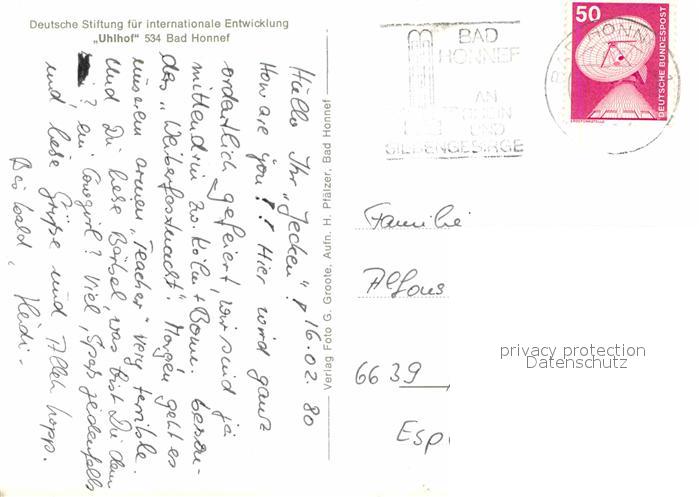 Deutsche Stiftung für internationale Entwicklung
„Uhlhof" 534 Bad Honnef
16.02.80
Hallo Ihr „Jecken"!
How are you?! Hier wird ganz
ordentlich gefeiert, wir sind ja
mittendrin zw. Köln + Bonn.
des „Weiberfastnacht". Morgen geht es
unserem armen „Teacher" very terrible.
Und Du liebe Bärbel, was bist Du denn
? ein Cowgirl? Viel Spaß jedenfalls
und liebe Grüße und Alleh hopp.
Bis bald, Heidi.
Verlag Foto G. Groote, Aufn. H. Pfälzer, Bad Honnef
BAD
HONNEF
AM
RHEIN
UND
SIEBENGEBIRGE
BAD HONNEF
50
DEUTSCHE BUNDESPOST
ERDEFUNKSTELLE
Familie
Alfons
6639
Esp
privacy protection
Datenschutz